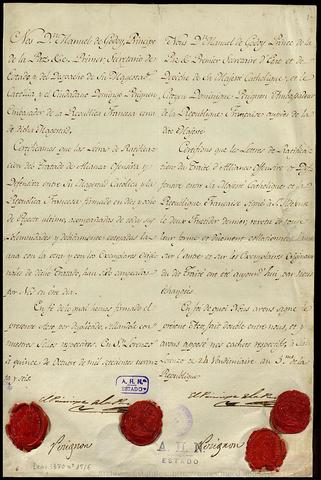 Nos Dn. Manuel de Godoy, Principe
de la Paz &c. Primer Secretario de
Estado y del Despacho de Su Magestad
Catolica, y el Ciudadano Domingo Perignon
Embaxador de la Republica Francesa cerca
de dicha Magestad.
Certificamos que las Letras de Ratifica-
cion del Tratado de Alianza Ofensiva y
Defensiva entre Su Magestad Catolica y la
Republica Francesa, firmado en diez y ocho
de Agosto ultimo, acompañadas de todas sus
solemnidades y debidamente cotejadas la
una con la otra y con los Exemplares Origi-
nales de dicho Tratado, han sido cangeadas
por Nos en este dia.
En fe de lo qual hemos firmado el
presente Acto por duplicado, sellandole con
nuestros Sellos respectivos. En Sn. Lorenzo
à quince de Octubre de mil setecientos noven-
ta y seis.
El Principe de la Paz
Perignon
Nous Dn. Manuel de Godoy, Prince de la
Paz &c. Premier Secretaire d'Etat et du
Depêche de Sa Majesté Catholique, et le
Citoyen Dominique Perignon Ambassadeur
de la Republique Française auprès de la
dite Majesté
Certifions que les Lettres de Ratifica-
tion du Traité d'Alliance Offensive et Dé-
fensive entre Sa Majesté Catholique et la
Republique Française signé à St. Ildefonse
le deux Fructidor dernier, revetues de toute
leur forme et dûement collationnées l'une
sur l'autre et sur les Exemplaires Originaux
du dit Traité ont été aujourd'hui par nous
échangées.
En foi de quoi Nous avons signé le
présent Acte, fait double entre nous, et y
avons apposé nos cachets respectifs, à Sn.
Lorenzo ce 24 Vendimiaire an 5me. de la
Republique.
El Principe de la Paz
Perignon
A. H. N.
ESTADO
A. H. N.
ESTADO